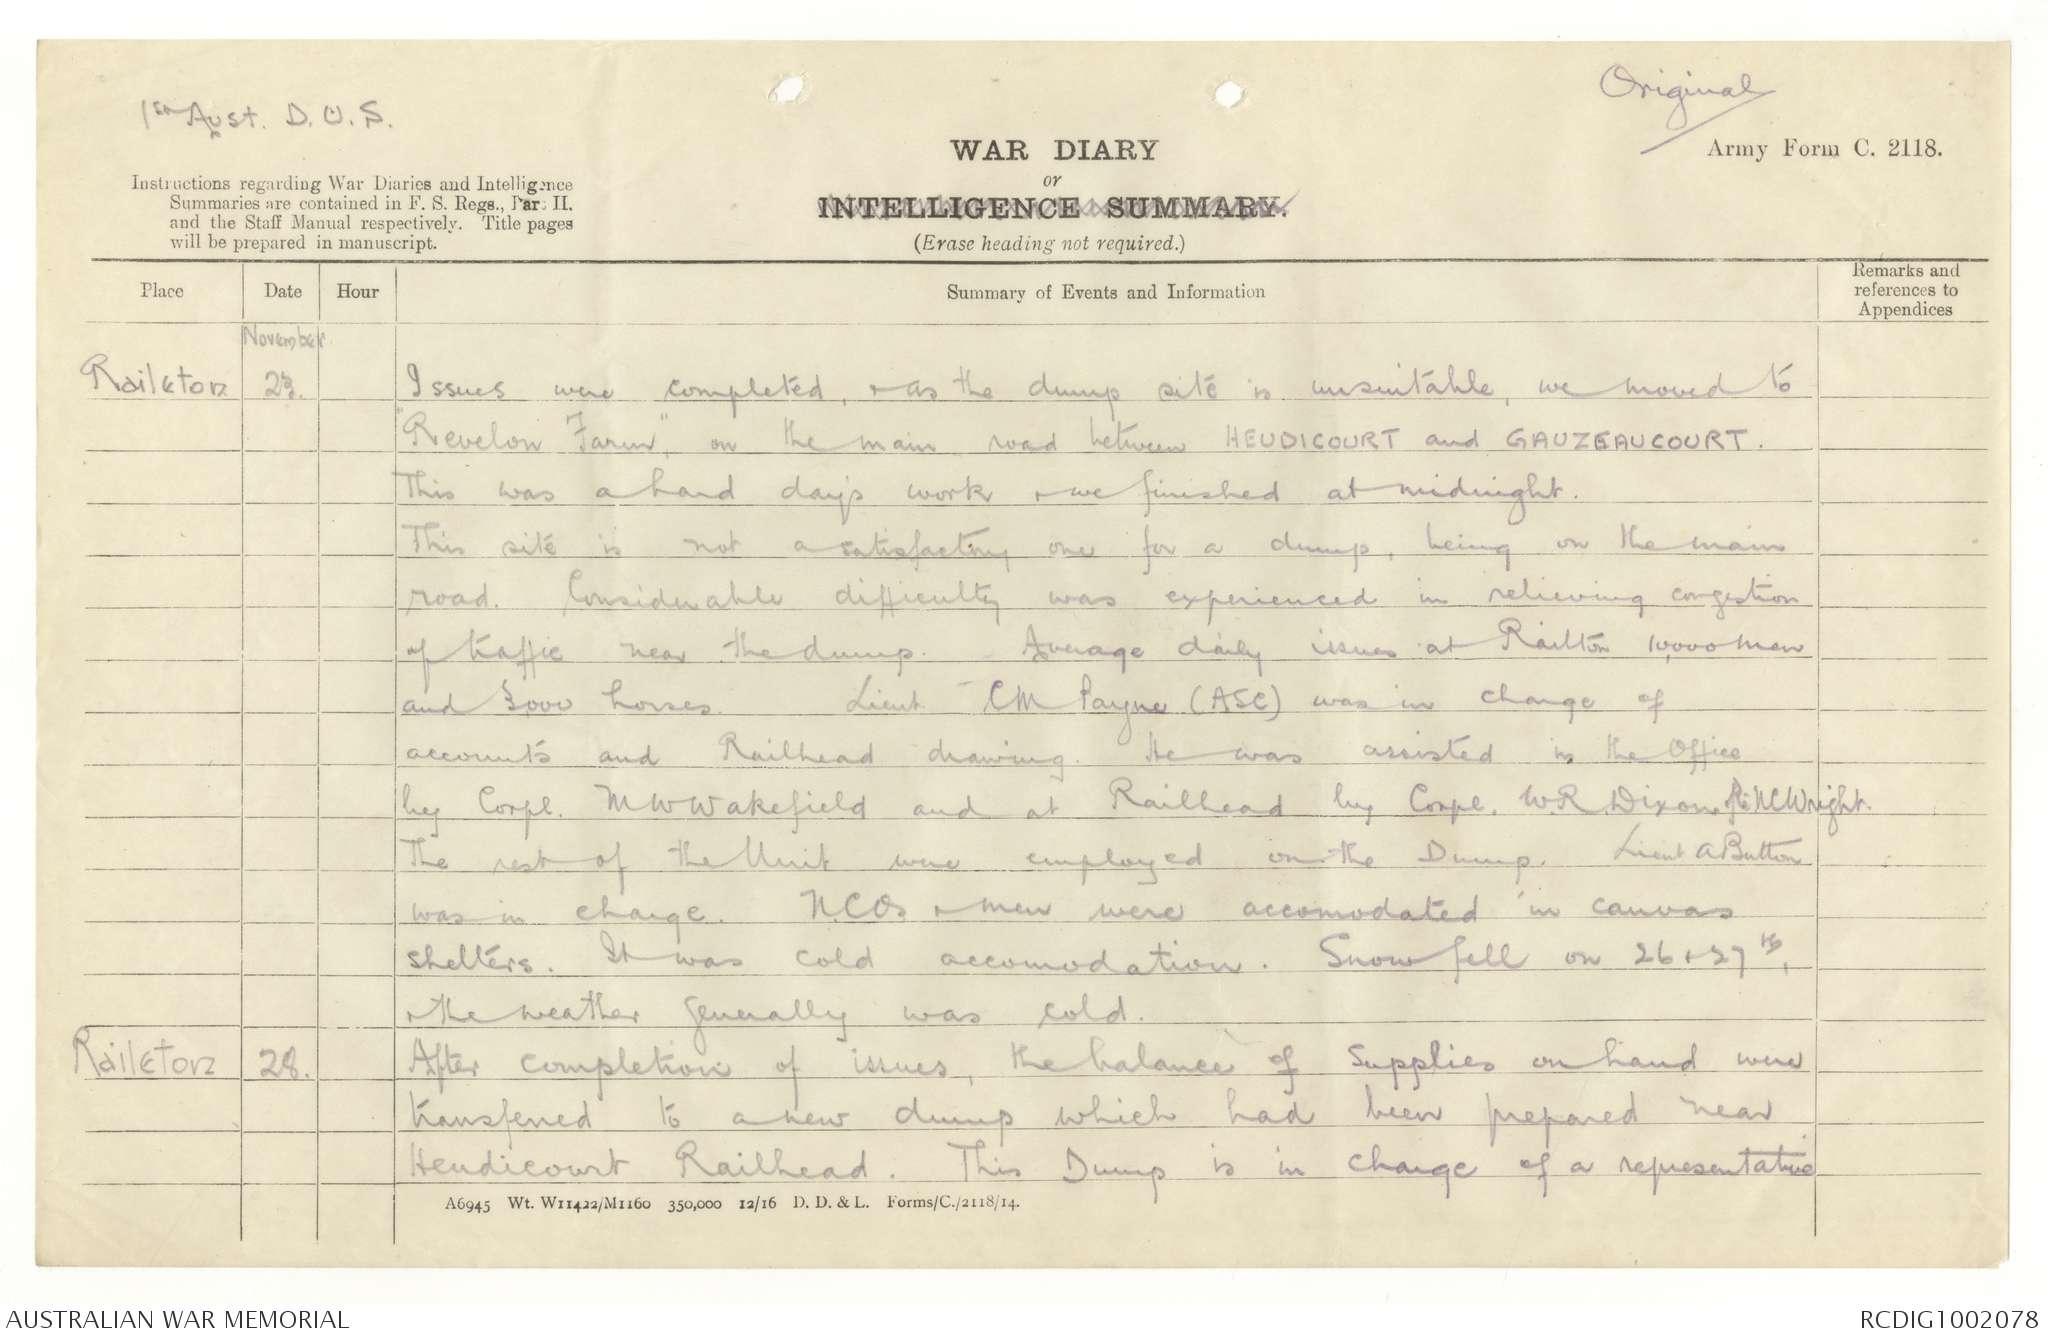 1st Aust. D.U.S.
Original
Army Form C. 2118.
WAR DIARY
or
INTELLIGENCE SUMMARY.
(Erase heading not required.)
Instructions regarding War Diaries and Intelligence
Summaries are contained in F. S. Regs., Part II.
and the Staff Manual respectively. Title pages
will be prepared in manuscript.
Place Date Hour Summary of Events and Information Remarks and references to Appendices
November
Railton 23. Issues were completed, + as the dump site is unsuitable, we moved to
"Revelon Farm", on the main road between HEUDICOURT and GAUZEAUCOURT.
This was a hard day's work + we finished at midnight.
This site is not a satisfactory one for a dump, being on the main
road. Considerable difficulty was experienced in relieving congestion
of traffic near the dump. Average daily issues at Railton 10,000 men
and 3,000 horses. Lieut CM Payne (ASC) was in charge of
accounts and Railhead drawing. He was assisted in the Office
by Corpl. M W Wakefield and at Railhead by Corpl. W.R. Dixon, Pte NC Wright.
The rest of the Unit were employed on the Dump. Lieut A Button
was in charge. N.C.Os + men were accomodated in canvas
shelters. It was cold accomodation. Snow fell on 26 + 27th,
+ the weather generally was cold.
Railton 28. After completion of issues, the balance of Supplies on hand were
transferred to a new dump which had been prepared near
Heudicourt Railhead. This Dump is in charge of a representative
A6945 Wt. W11422/M1160 350,000 12/16 D. D. & L. Forms/C./2118/14.
AUSTRALIAN WAR MEMORIAL
RCDIG1002078